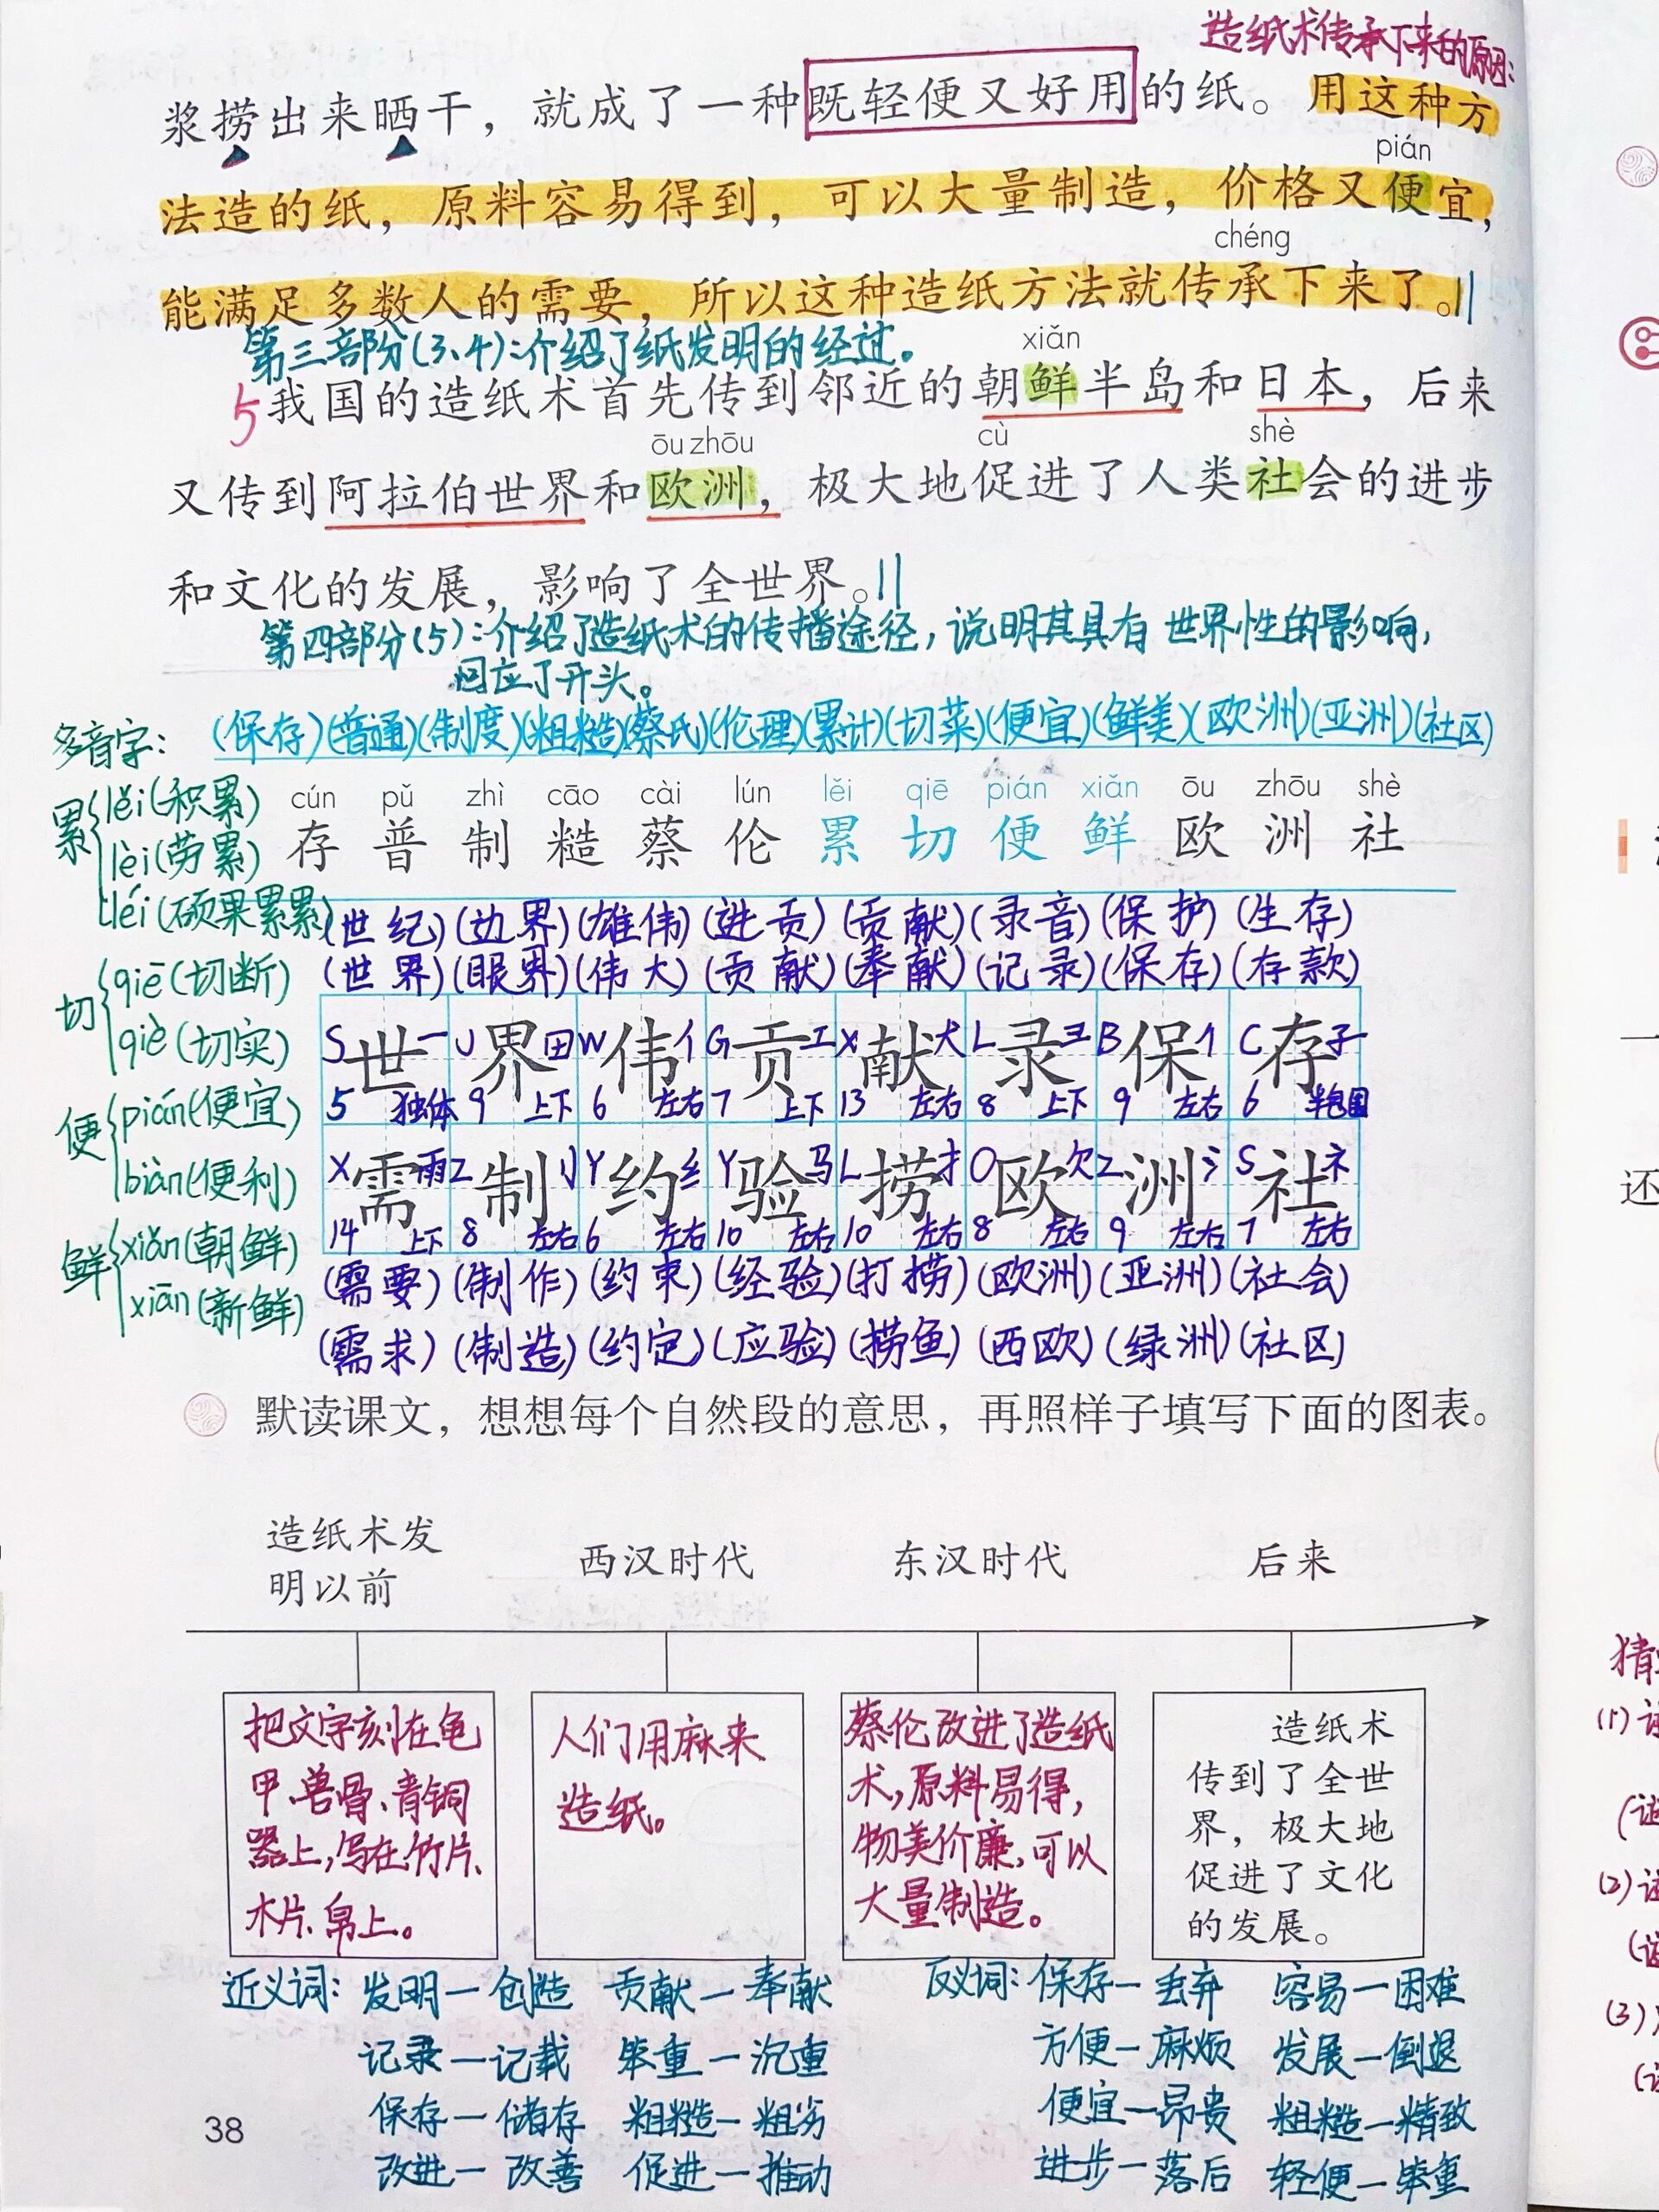 造纸术传承下来的原因：
浆捞出来晒干，就成了一种既轻便又好用的纸。用这种方
pián
法造的纸，原料容易得到，可以大量制造，价格又便宜，
chéng
能满足多数人的需要，所以这种造纸方法就传承下来了。||
第三部分(3、4)：介绍了纸发明的经过。
xiǎn
5我国的造纸术首先传到邻近的朝鲜半岛和日本，后来
ōu zhōu cù shè
又传到阿拉伯世界和欧洲，极大地促进了人类社会的进步
和文化的发展，影响了全世界。||
第四部分(5)：介绍了造纸术的传播途径，说明其具有世界性的影响，
回应了开头。
多音字：
(保存)(普通)(制度)(粗糙)(蔡氏)(伦理)(累计)(切菜)(便宜)(鲜美)(欧洲)(亚洲)(社区)
cún pǔ zhì cāo cài lún lěi qiē pián xiǎn ōu zhōu shè
存 普 制 糙 蔡 伦 累 切 便 鲜 欧 洲 社
累 lěi(积累)
lèi(劳累)
léi(硕果累累)
切 qiē(切断)
qiè(切实)
便 pián(便宜)
biàn(便利)
鲜 xiǎn(朝鲜)
xiān(新鲜)
(世纪)(边界)(雄伟)(进贡)(贡献)(录音)(保护)(生存)
(世界)(眼界)(伟大)(贡献)(奉献)(记录)(保存)(存款)
S 世 一 J 界 田 W 伟 亻 G 贡 工 X 献 犬 L 录 彐 B 保 亻 C 存 子
5 独体 9 上下 6 左右 7 上下 13 左右 8 上下 9 左右 6 半包围
X 需 雨 Z 制 刂 Y 约 纟 Y 验 马 L 捞 扌 O 欧 欠 Z 洲 氵 S 社 礻
14 上下 8 左右 6 左右 10 左右 10 左右 8 左右 9 左右 7 左右
(需要)(制作)(约束)(经验)(打捞)(欧洲)(亚洲)(社会)
(需求)(制造)(约定)(应验)(捞鱼)(西欧)(绿洲)(社区)
默读课文，想想每个自然段的意思，再照样子填写下面的图表。
造纸术发
明以前
西汉时代
东汉时代
后来
把文字刻在龟
甲、兽骨、青铜
器上，写在竹片、
木片、帛上。
人们用麻来
造纸。
蔡伦改进了造纸
术，原料易得，
物美价廉，可以
大量制造。
造纸术
传到了全世
界，极大地
促进了文化
的发展。
近义词：发明—创造 贡献—奉献
记录—记载 笨重—沉重
保存—储存 粗糙—粗劣
改进—改善 促进—推动
反义词：保存—丢弃 容易—困难
方便—麻烦 发展—倒退
便宜—昂贵 粗糙—精致
进步—落后 轻便—笨重
38
还
猜
(1)
(2)
(3)